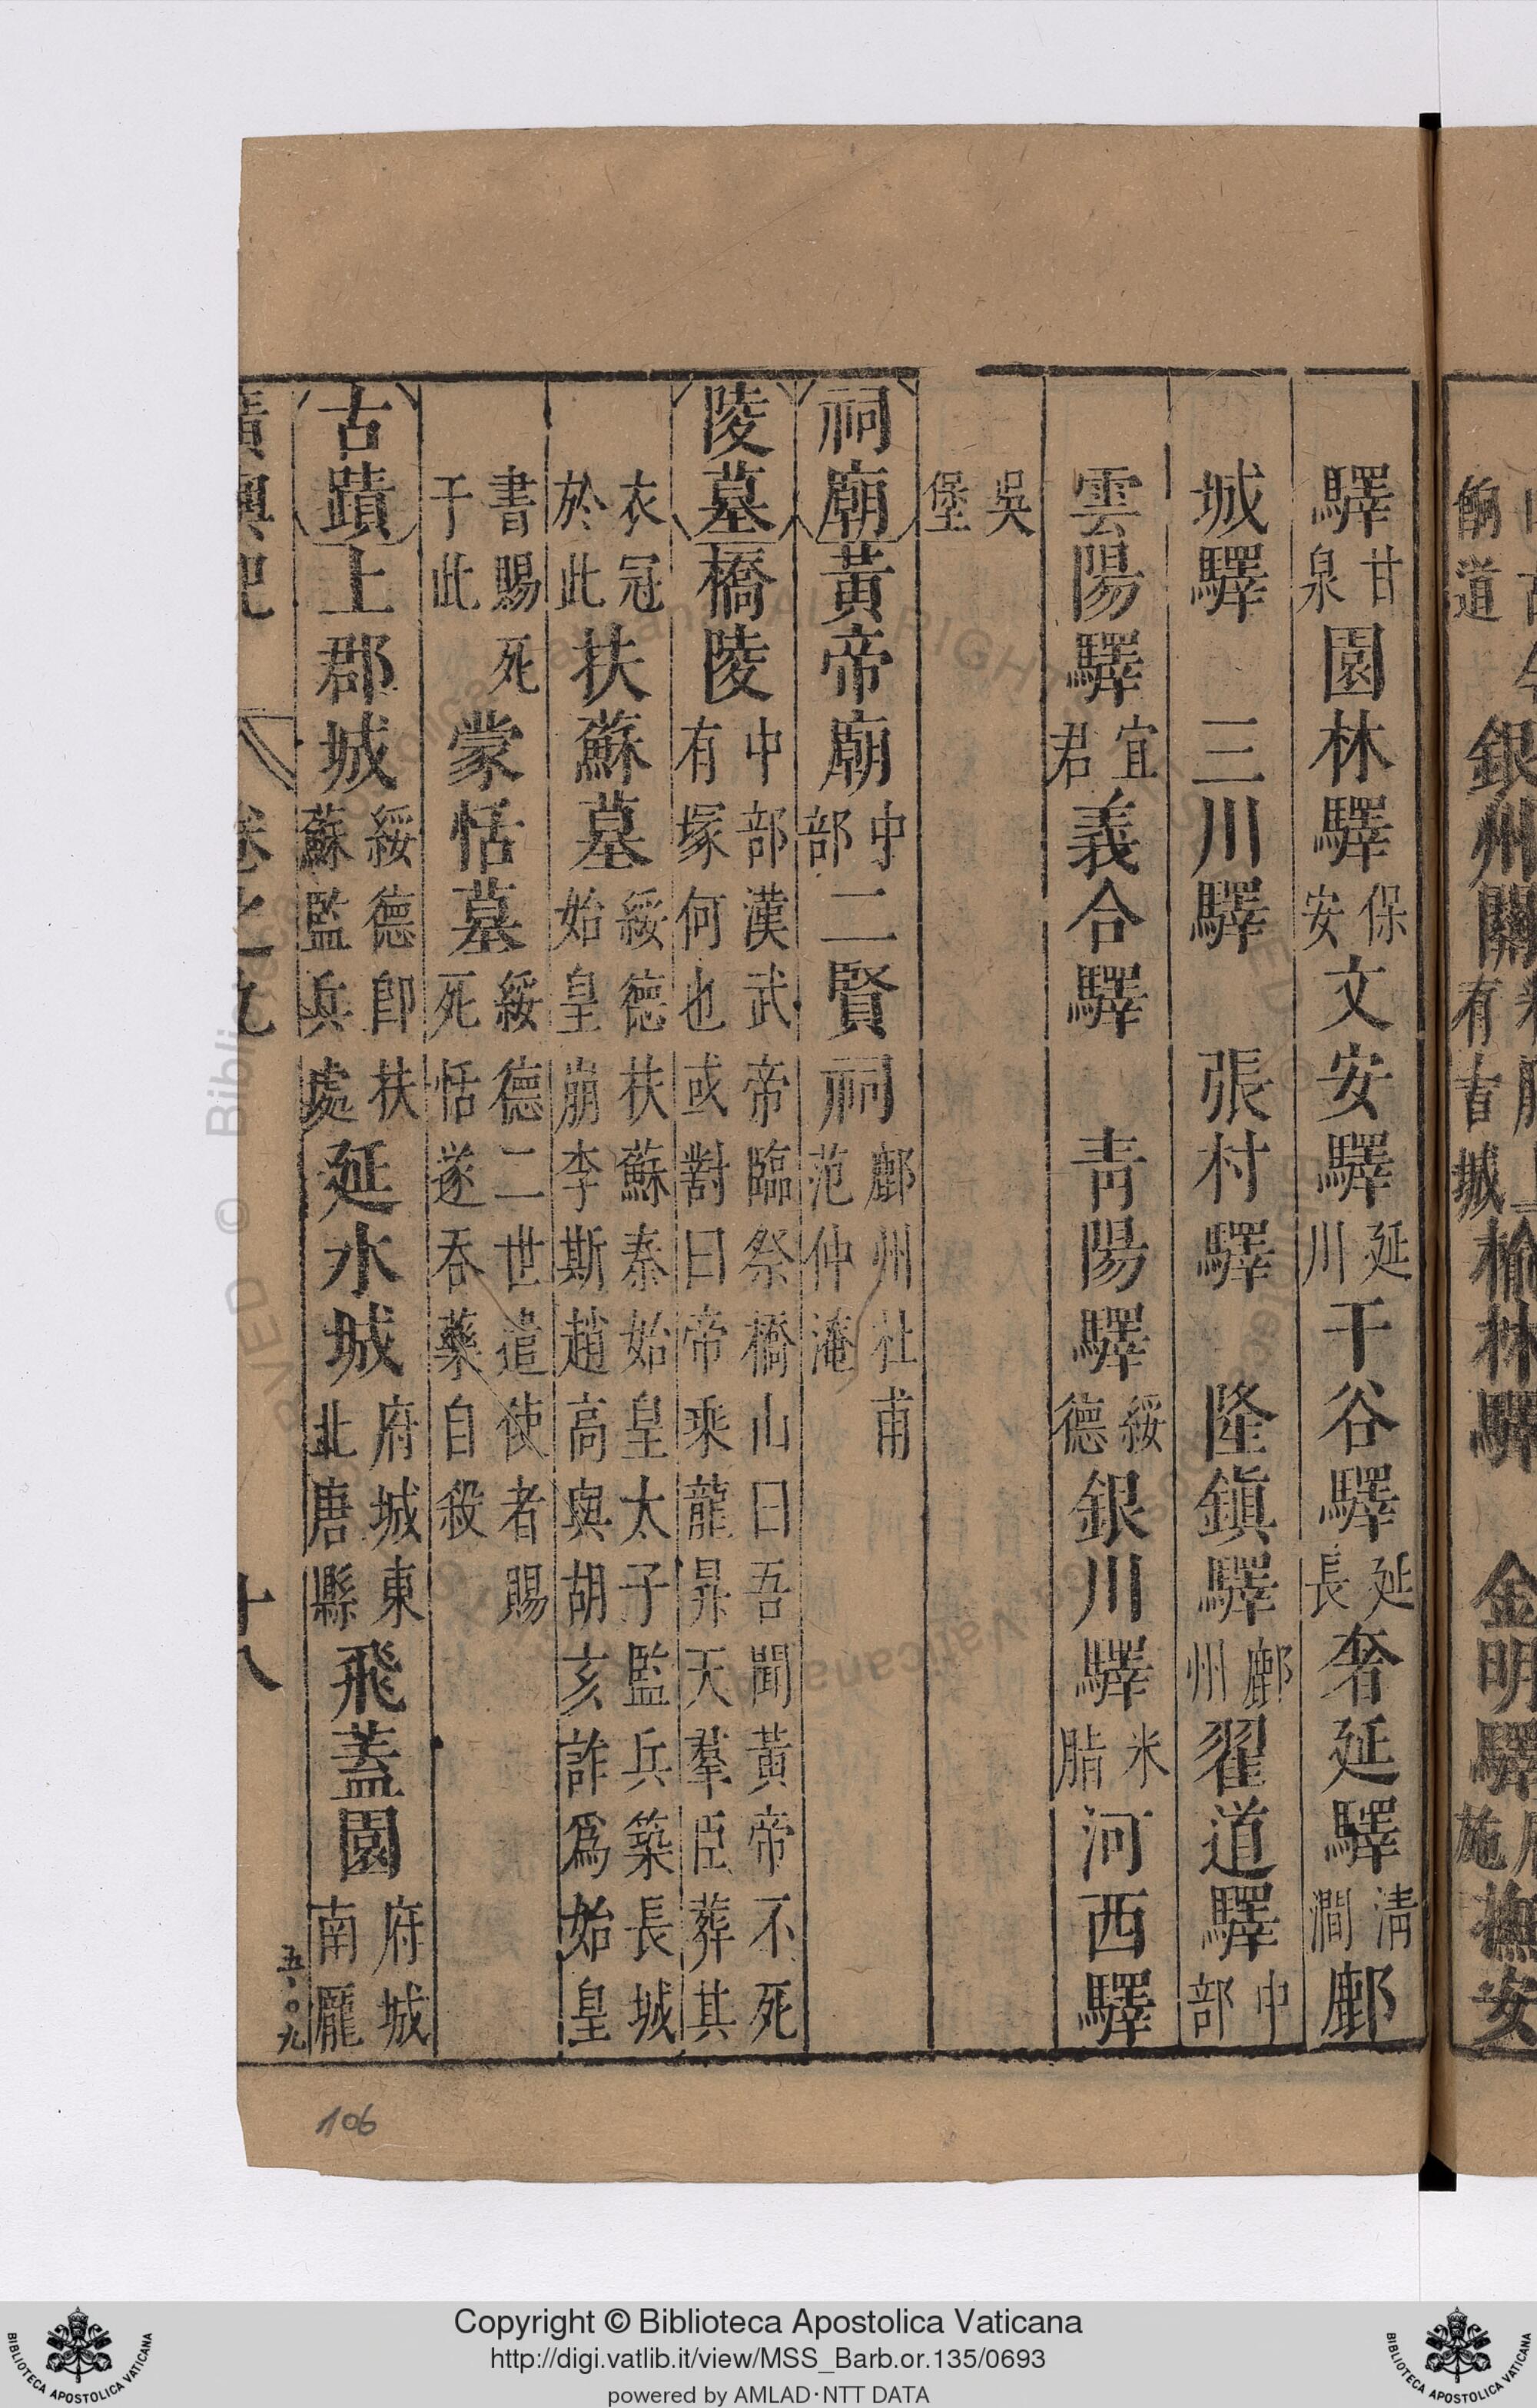 驛甘泉園林驛保安文安驛延川干谷驛延長奢延驛清澗鄜
城驛 三川驛 張村驛 隆鎮驛鄜州翟道驛中部
雲陽驛宜君義合驛 青陽驛綏德銀川驛米脂河西驛
吳堡
祠廟黃帝廟中部二賢祠鄜州社甫范仲淹
陵墓橋陵中部漢武帝臨祭橋山曰吾聞黃帝不死有塚何也或對曰帝乘龍昇天羣臣葬其
衣冠於此扶蘇墓綏德扶蘇秦始皇太子監兵築長城始皇崩李斯趙高與胡亥詐為始皇
書賜死于此蒙恬墓綏德二世遣使者賜死恬遂吞藥自殺
古蹟上郡城綏德卽扶蘇監兵處延水城府城東北唐縣飛蓋園府城南龎
廣輿記 卷之九 十八
五〇九
106
銀州關
榆林驛 金明驛 撫安
Copyright © Biblioteca Apostolica Vaticana
http://digi.vatlib.it/view/MSS_Barb.or.135/0693
powered by AMLAD·NTT DATA
BIBLIOTECA APOSTOLICA VATICANA
BIBLIOTECA APOSTOLICA VATICANA